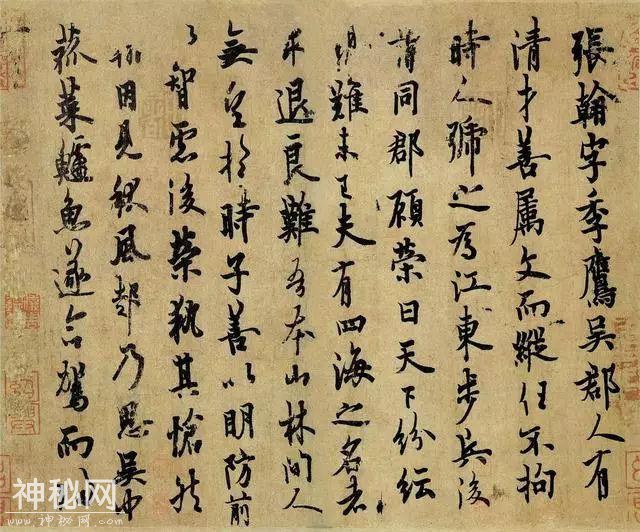 張翰字季鷹吳郡人有
清才善屬文而縱任不拘
時人號之為江東步兵後
謂同郡顧榮曰天下紛紜
禍難未已夫有四海之名者
求退良難吾本山林間人
無望於時子善以明防前
以智慮後榮執其愴然
翰因見秋風起乃思吳中
菰菜鱸魚遂命駕而歸
神秘网